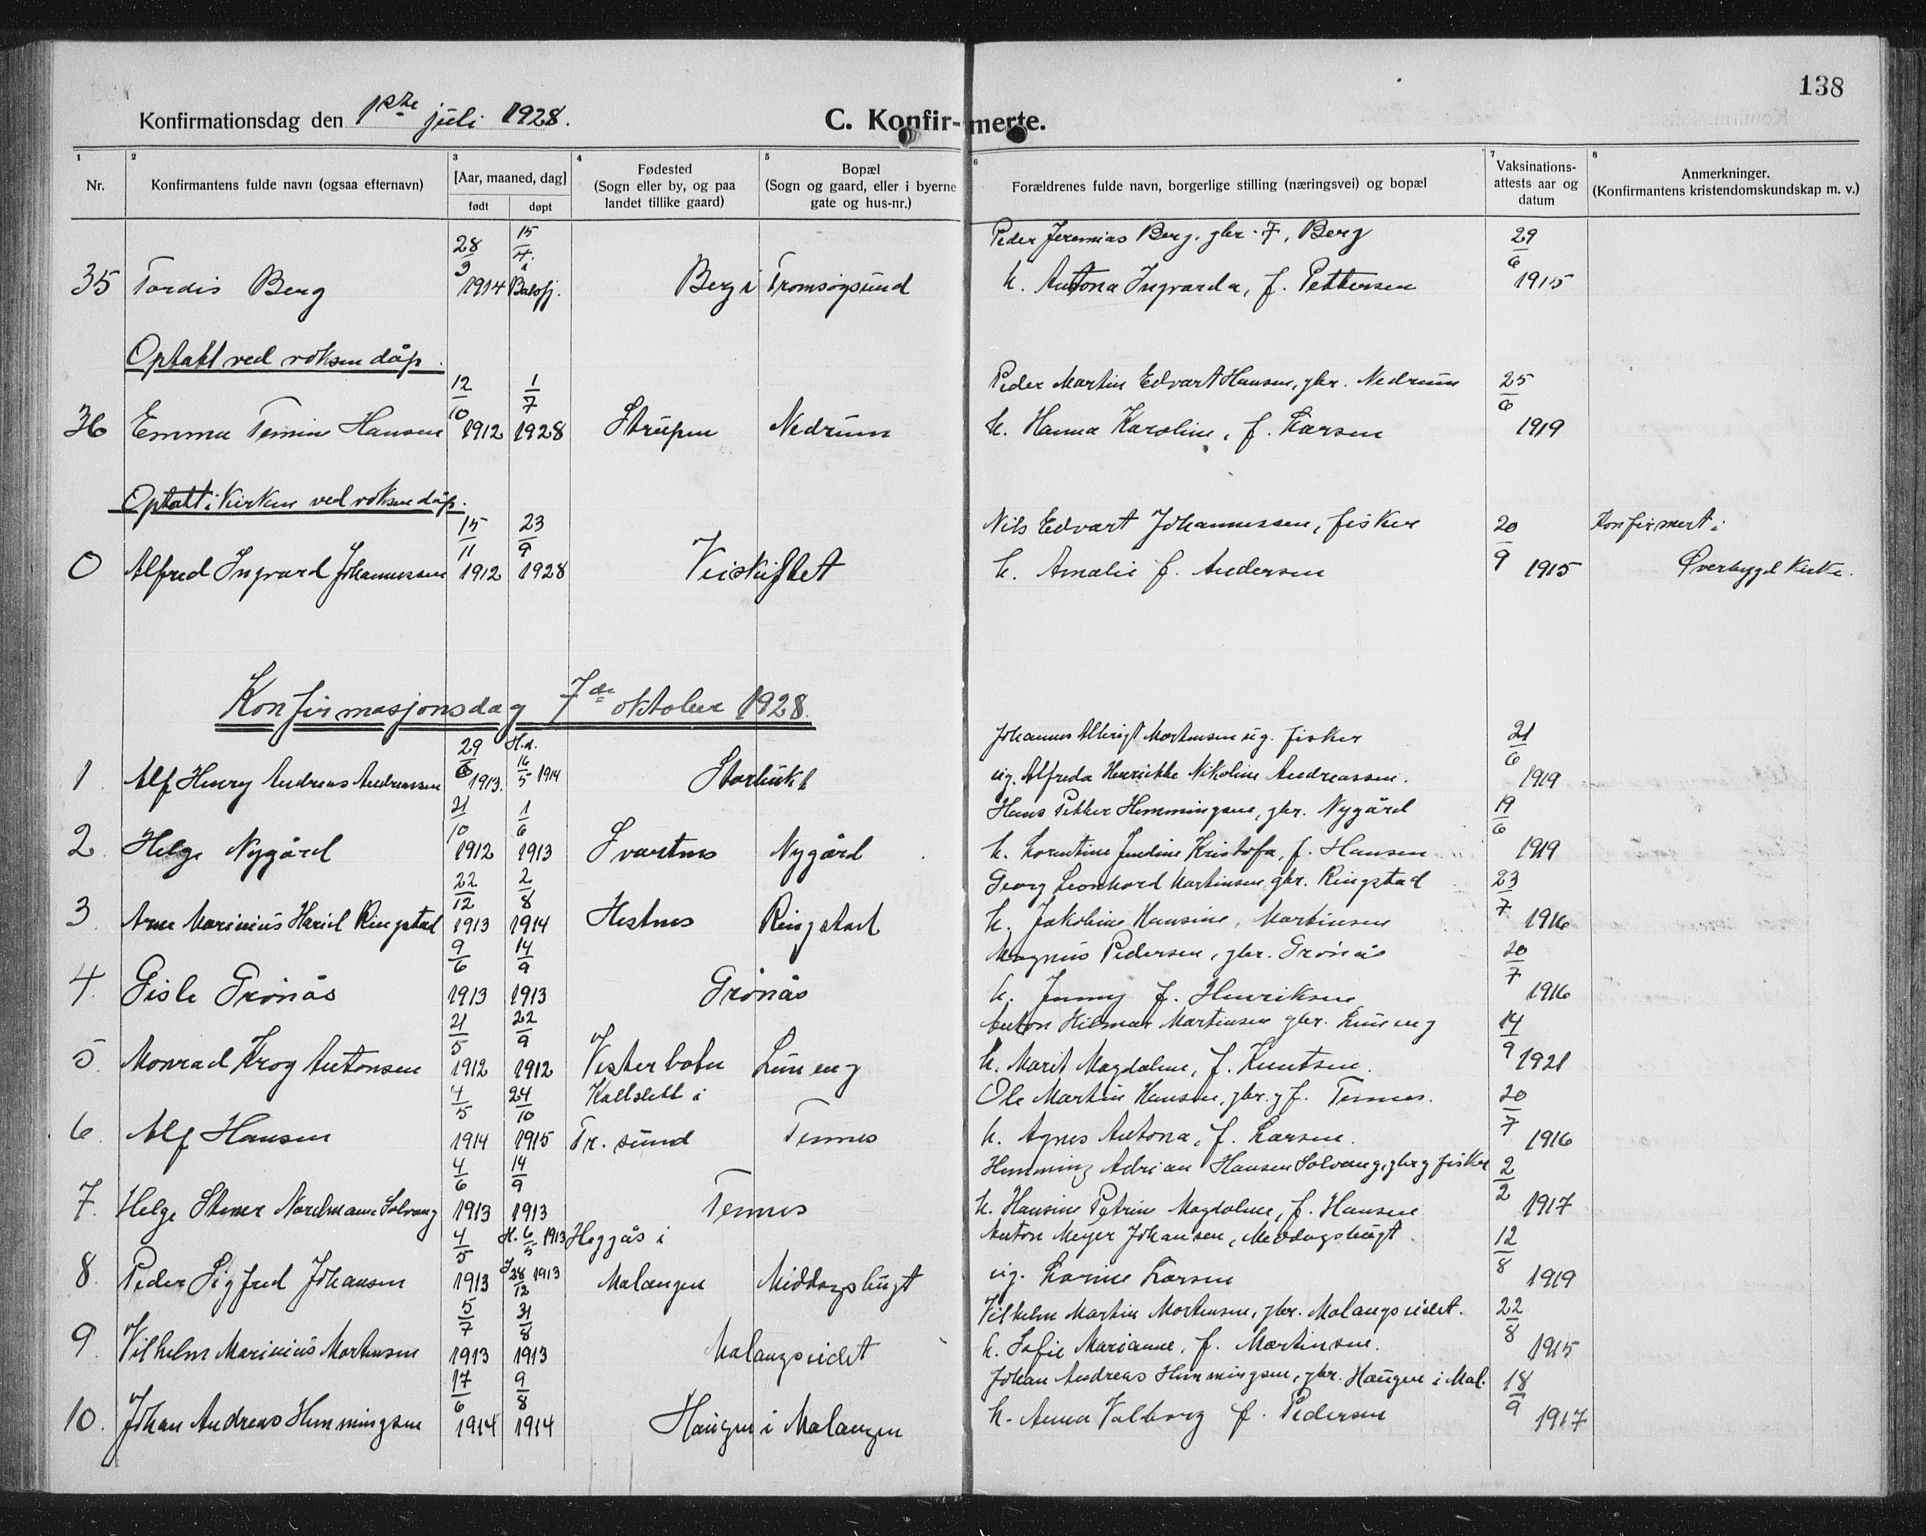 138
Konfirmationsdag den 1ste juli 1928.
C. Konfirmerte.
1 2 3 4 5 6 7 8
Nr.
Konfirmantens fulde navn (ogsaa efternavn)
[Aar, maaned, dag]
født døpt
Fødested
(Sogn eller by, og paa
landet tillike gaard)
Bopæl
(Sogn og gaard, eller i byerne
gate og hus-nr.)
Forældrenes fulde navn, borgerlige stilling (næringsvei) og bopæl
Vaksinations-
attests aar og
datum
Anmerkninger.
(Konfirmantens kristendomskundskap m. v.)
28/3 15/4 i Peder Jeremias Berg, gbr. 7, Berg 29/6
35 Tordis Berg 1914 Balsfj. Berg i Tromsøysund h. Antona Ingvarda, f. Pettersen 1915
Optatt ved voksen dåp.
12/10 1/7 Peder Martin Edvart Hansen, gbr. Nedrum 25/6
36 Emma Hansen 1912 1928 Strupen Nedrum h. Hanna Karoline, f. Larsen 1919
Optatt i Kirken ved voksen dåp.
15/11 23/9 Nils Edvart Johannessen, fisker 20/9 Konfirmert i
0 Alfred Ingvard Johannessen 1912 1928 Veiskiftet h. Amalie f. Andersen 1915 Øverbygd Kirke.
Konfirmasjonsdag 7de oktober 1928.
29/6 H.d. 16/5 1914 Johannes Mortensen ug. fisker 21/6
1. Alf Henry Andreas Andreassen 1913. Storbukt ug. Alfreda Henrikke Nikoline Andreassen. 1919
21/10 1/6 Hans Petter Hemmingsen, gbr. Nygård 19/6
2. Helge Nygård 1912 1913 Svartnes Nygård h. Lorentine Jendine Kristofa, f. Hansen 1919
22/12 2/8 Georg Leonhard Martinsen gbr. Ringstad 23/7
3. Arne Marinius Ringstad 1913 1914 Hestnes Ringstad h. Jakobine Hansine, Martinsen 1916
9/6 14/9 Magnus Pedersen, gbr. Grønås 20/7
4. Gisle Grønås 1913 1913 Grønås h. Jenny f. Henriksen 1916
21/5 22/9 Anton Hilmar Martinsen gbr. Luneng 14/9
5. Monrad Krog Antonsen 1912 1912 Vesterbotn Luneng h. Marit Magdalene, f. Knutsen. 1921
4/5 24/10 Kaldslett i Ole Martin Hansen, gbr. g f. Tennes. 20/7
6. Alf Hansen 1914 1915 Tr. sund Tennes h. Agnes Antona, f. Larsen. 1916
4/6 14/9 Hemming Adrian Hansen Solvang, gbr g fisker 2/2
7. Helge Stener Nordmann Solvang 1913 1913 Tennes h. Hansine Petrine Magdalene, f. Hansen 1917
4/5 H. 6/5 1913 Heggås i Anton Meyer Johansen, Meddagsbugt 12/8
8. Peder Sigfred Johansen 1913 28/12 1913 Malangen Middagsbugt ug. Larsen 1919
5/7 31/8 Vilhelm Martin Mortensen, gbr. Malangseidet. 22/8
9. Vilhelm Marinius Mortensen 1913 1913 Malangseidet h. Sofie Marianne, f. Martinsen. 1915
17/6 9/8 Johan Andreas Hemmingsen, gbr. Haugen i Mal. 18/9
10. Johan Andreas Hemmingsen 1914 1914 Haugen i Malangen h. Anna Valborg f. Pedersen 1917